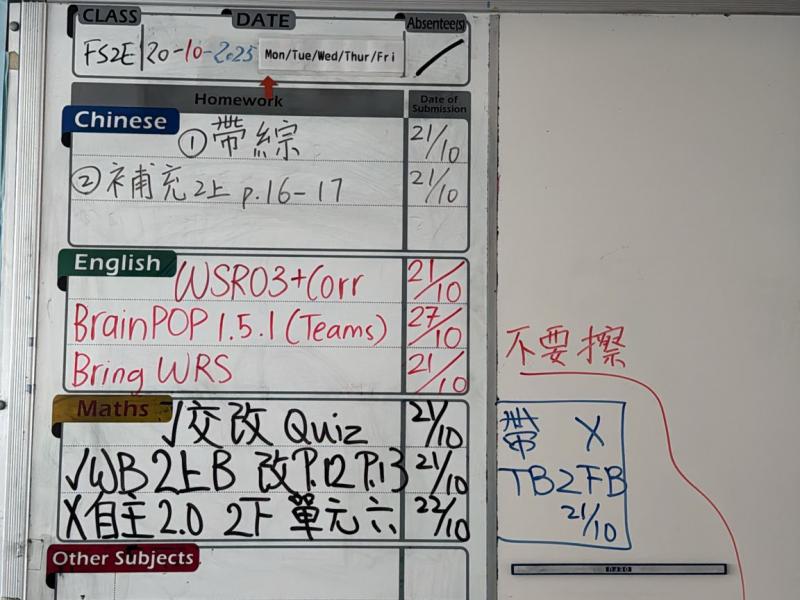 CLASS DATE Absentee(s)
FS2E 20-10-2025 Mon/Tue/Wed/Thur/Fri
Homework Date of Submission
Chinese
① 帶綜 21/10
② 補充2上 p.16-17 21/10
English
WSR03+Corr 21/10
BrainPOP 1.5.1 (Teams) 27/10
Bring WRS 21/10
Maths
√交改 Quiz 21/10
√WB 2上B 改P.12 P.13 21/10
X自主2.0 2下 單元六 22/10
Other Subjects
不要擦
帶 X
TB2下B
21/10